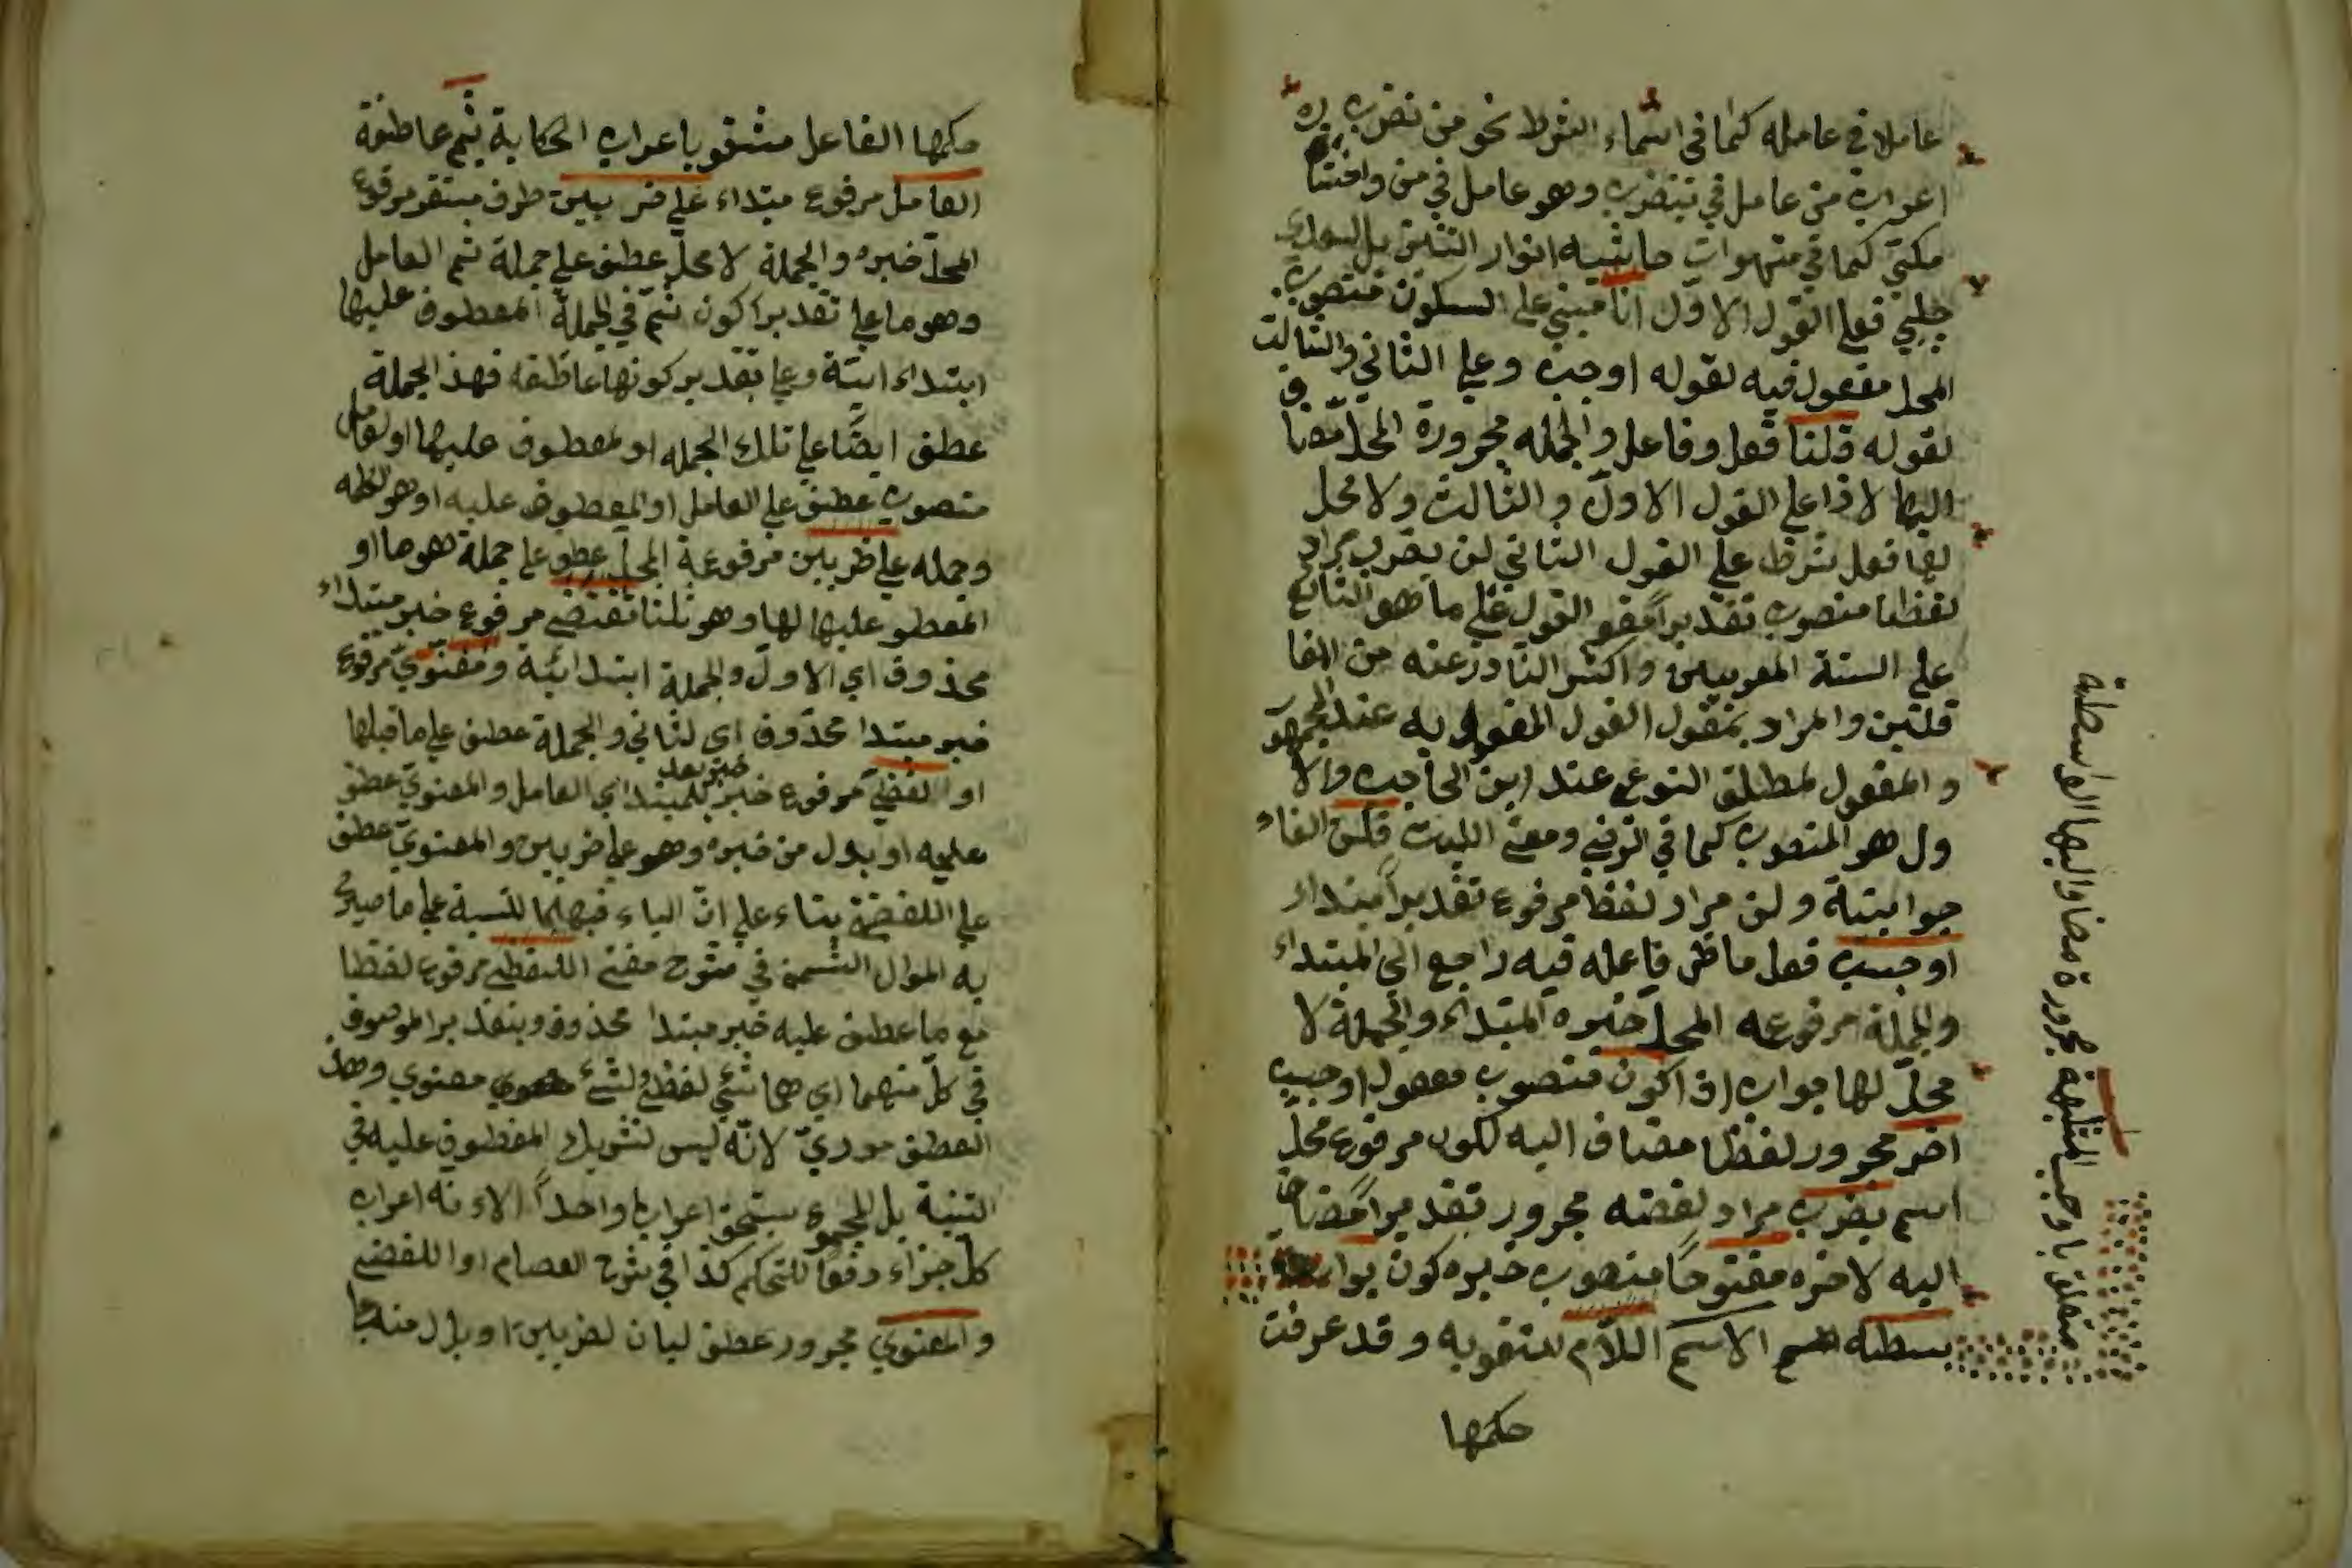 عاملا في عامله كما في اسماء الشرط نحو من تضرب
اعراب من عامل في تضرب وهو عامل في من واختا
مكتبي كما في منهوات حاشيه انوار التنزيل
جلبي فعلي القول الاول اذا مبني علي السكون منصوب
المحل مفعول فيه لقوله اوجب وعلي الثاني والثالث
لقوله قلنا فعل وفاعل والجمله مجرورة المحل مضا
اليها لاذا علي القول الاول والثالث ولا محل
لها فعل شرط علي القول الثاني لن يضرب مراد
لفظا منصوب تقديرا مقو القول علي ما هو الشائع
علي السنة المعربين واكثر النا وزعنه من المفا
قلتين والمراد بمقول القول المفعول به عند الجمهو
والمفعول لمطلق النوعي عند ابن الحاجب والا
ول هو المنصوب كما في الرضي ومغني اللبيب فلن الفاء
جوابية ولن مراد لفظا مرفوع تقديرا مبتداء
اوجب فعل ماض فاعله فيه راجع الي المبتداء
والجملة مرفوعه المحل خبره المبتداء والجملة لا
محل لها جواب اذا كون منصوب مفعول اوجب
اخر مجرور لفظا مضاف اليه لكون مرفوع محل
اسم يضرب مراد لفظه مجرور تقديرا مضاف
اليه لاخره مفتوحا منصوب خبره كون بوا
سطه الاسم اللام للتقويه وقد عرفت
حكمها
متعلق باوجب المتلبية مجرورة مضا واليها الواسطة
حكمها الفاعل مشقو باعراب الحكاية ثم عاطفة
العامل مرفوع مبتداء علي ضربين ظرف مستقر مرفوع
المحل خبره والجملة لا محل عطف علي جملة ثم العامل
وهو ما علي تقدير اكون ثم في الجملة المعطوف عليها
ابتداء ائية وعلي تقدير كونها عاطفه فهذ الجملة
عطف ايضا علي تلك الجمله او لمعطوف عليها او لعامل
منصوب عطف علي العامل او المعطوف عليه او هو لفظه
وجمله علي ضربين مرفوعة المحل عطو علي جملة هو ما او
المعطو عليها لها وهو قلنا تقتضي مرفوع خبر مبتداء
محذوف اي الاول والجملة ابتدائية ومعنوي مرفوع
خبر مبتدا محذوف اي لثاني والجملة عطف علي ما قبلها
او لفظي مرفوع خبر بعد خبر للمبتدا اي العامل والمعنوي عطف
عليه او بدل من خبره وهو علي ضربين والمعنوي عطف
علي اللفظية بناء علي ان الياء فيهما للنسبة علي ما صرح
به الموال الشمني في شرح مغني اللفظي مرفوع لفظا
مع ما عطف عليه خبر مبتدا محذوف وبتقدير الموصوف
في كل منهما اي هما شئ لفظي ولشئ معنوي وهذ
العطف صوري لانه ليس لتشريك المعطوف عليه في
النسبة بل المجموع يستحق اعرابا واحدا الا انه اعراب
كل جزاء دفعا للتحكم كذا في شرح العصام او اللفظي
والمعنوي مجرور عطف لبيان لضربين او بدل منهما